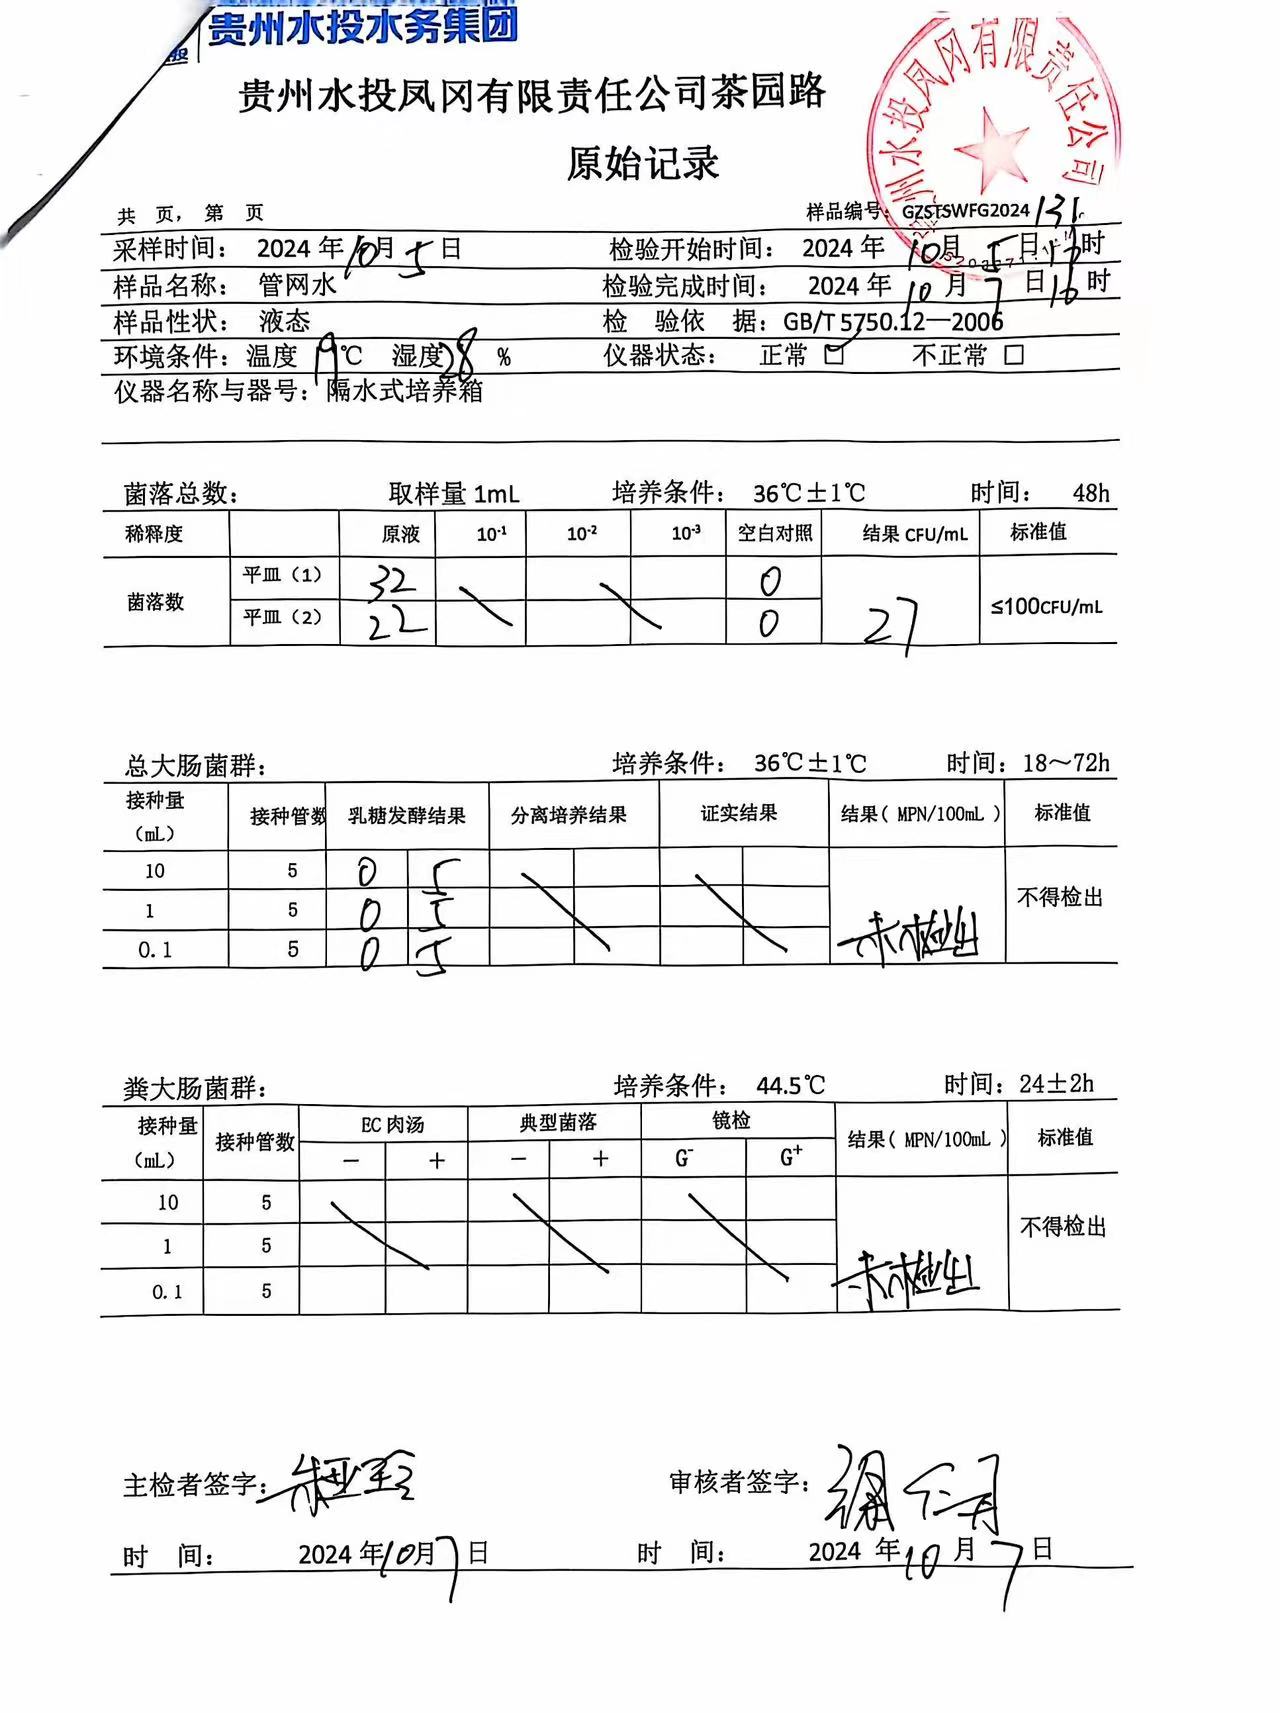 贵州水投水务集团
贵州水投凤冈有限责任公司茶园路
原始记录
贵州水投凤冈有限责任公司
共 页， 第 页 样品编号：GZSTSWFG2024 131
采样时间： 2024 年 10 月 5 日 检验开始时间： 2024 年 10 月 5 日 时
样品名称： 管网水 检验完成时间： 2024 年 10 月 7 日 16 时
样品性状： 液态 检 验依 据：GB/T 5750.12—2006
环境条件：温度 19 ℃ 湿度 28 % 仪器状态： 正常 ☑ 不正常 □
仪器名称与器号：隔水式培养箱
菌落总数： 取样量 1mL 培养条件： 36℃±1℃ 时间： 48h
稀释度 原液 10-1 10-2 10-3 空白对照 结果 CFU/mL 标准值
菌落数 平皿（1） 32 0 27 ≤100CFU/mL
平皿（2） 22 0
总大肠菌群： 培养条件： 36℃±1℃ 时间：18～72h
接种量（mL） 接种管数 乳糖发酵结果 分离培养结果 证实结果 结果（ MPN/100mL ） 标准值
10 5 0 5 未检出 不得检出
1 5 0 5
0.1 5 0 5
粪大肠菌群： 培养条件： 44.5℃ 时间：24±2h
接种量（mL） 接种管数 EC 肉汤 典型菌落 镜检 结果（ MPN/100mL ） 标准值
－ ＋ － ＋ G- G+
10 5 未检出 不得检出
1 5
0.1 5
主检者签字： 审核者签字：
时 间： 2024 年 10 月 7 日 时 间： 2024 年 10 月 7 日